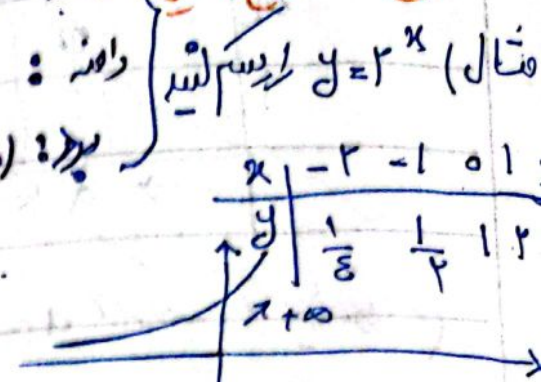 مثال) y = ۲^x را رسم کنید
دامنه :
برد : (
x | -۲ -۱ ۰ ۱
y | ۱/۴ ۱/۲ ۱ ۲
+∞